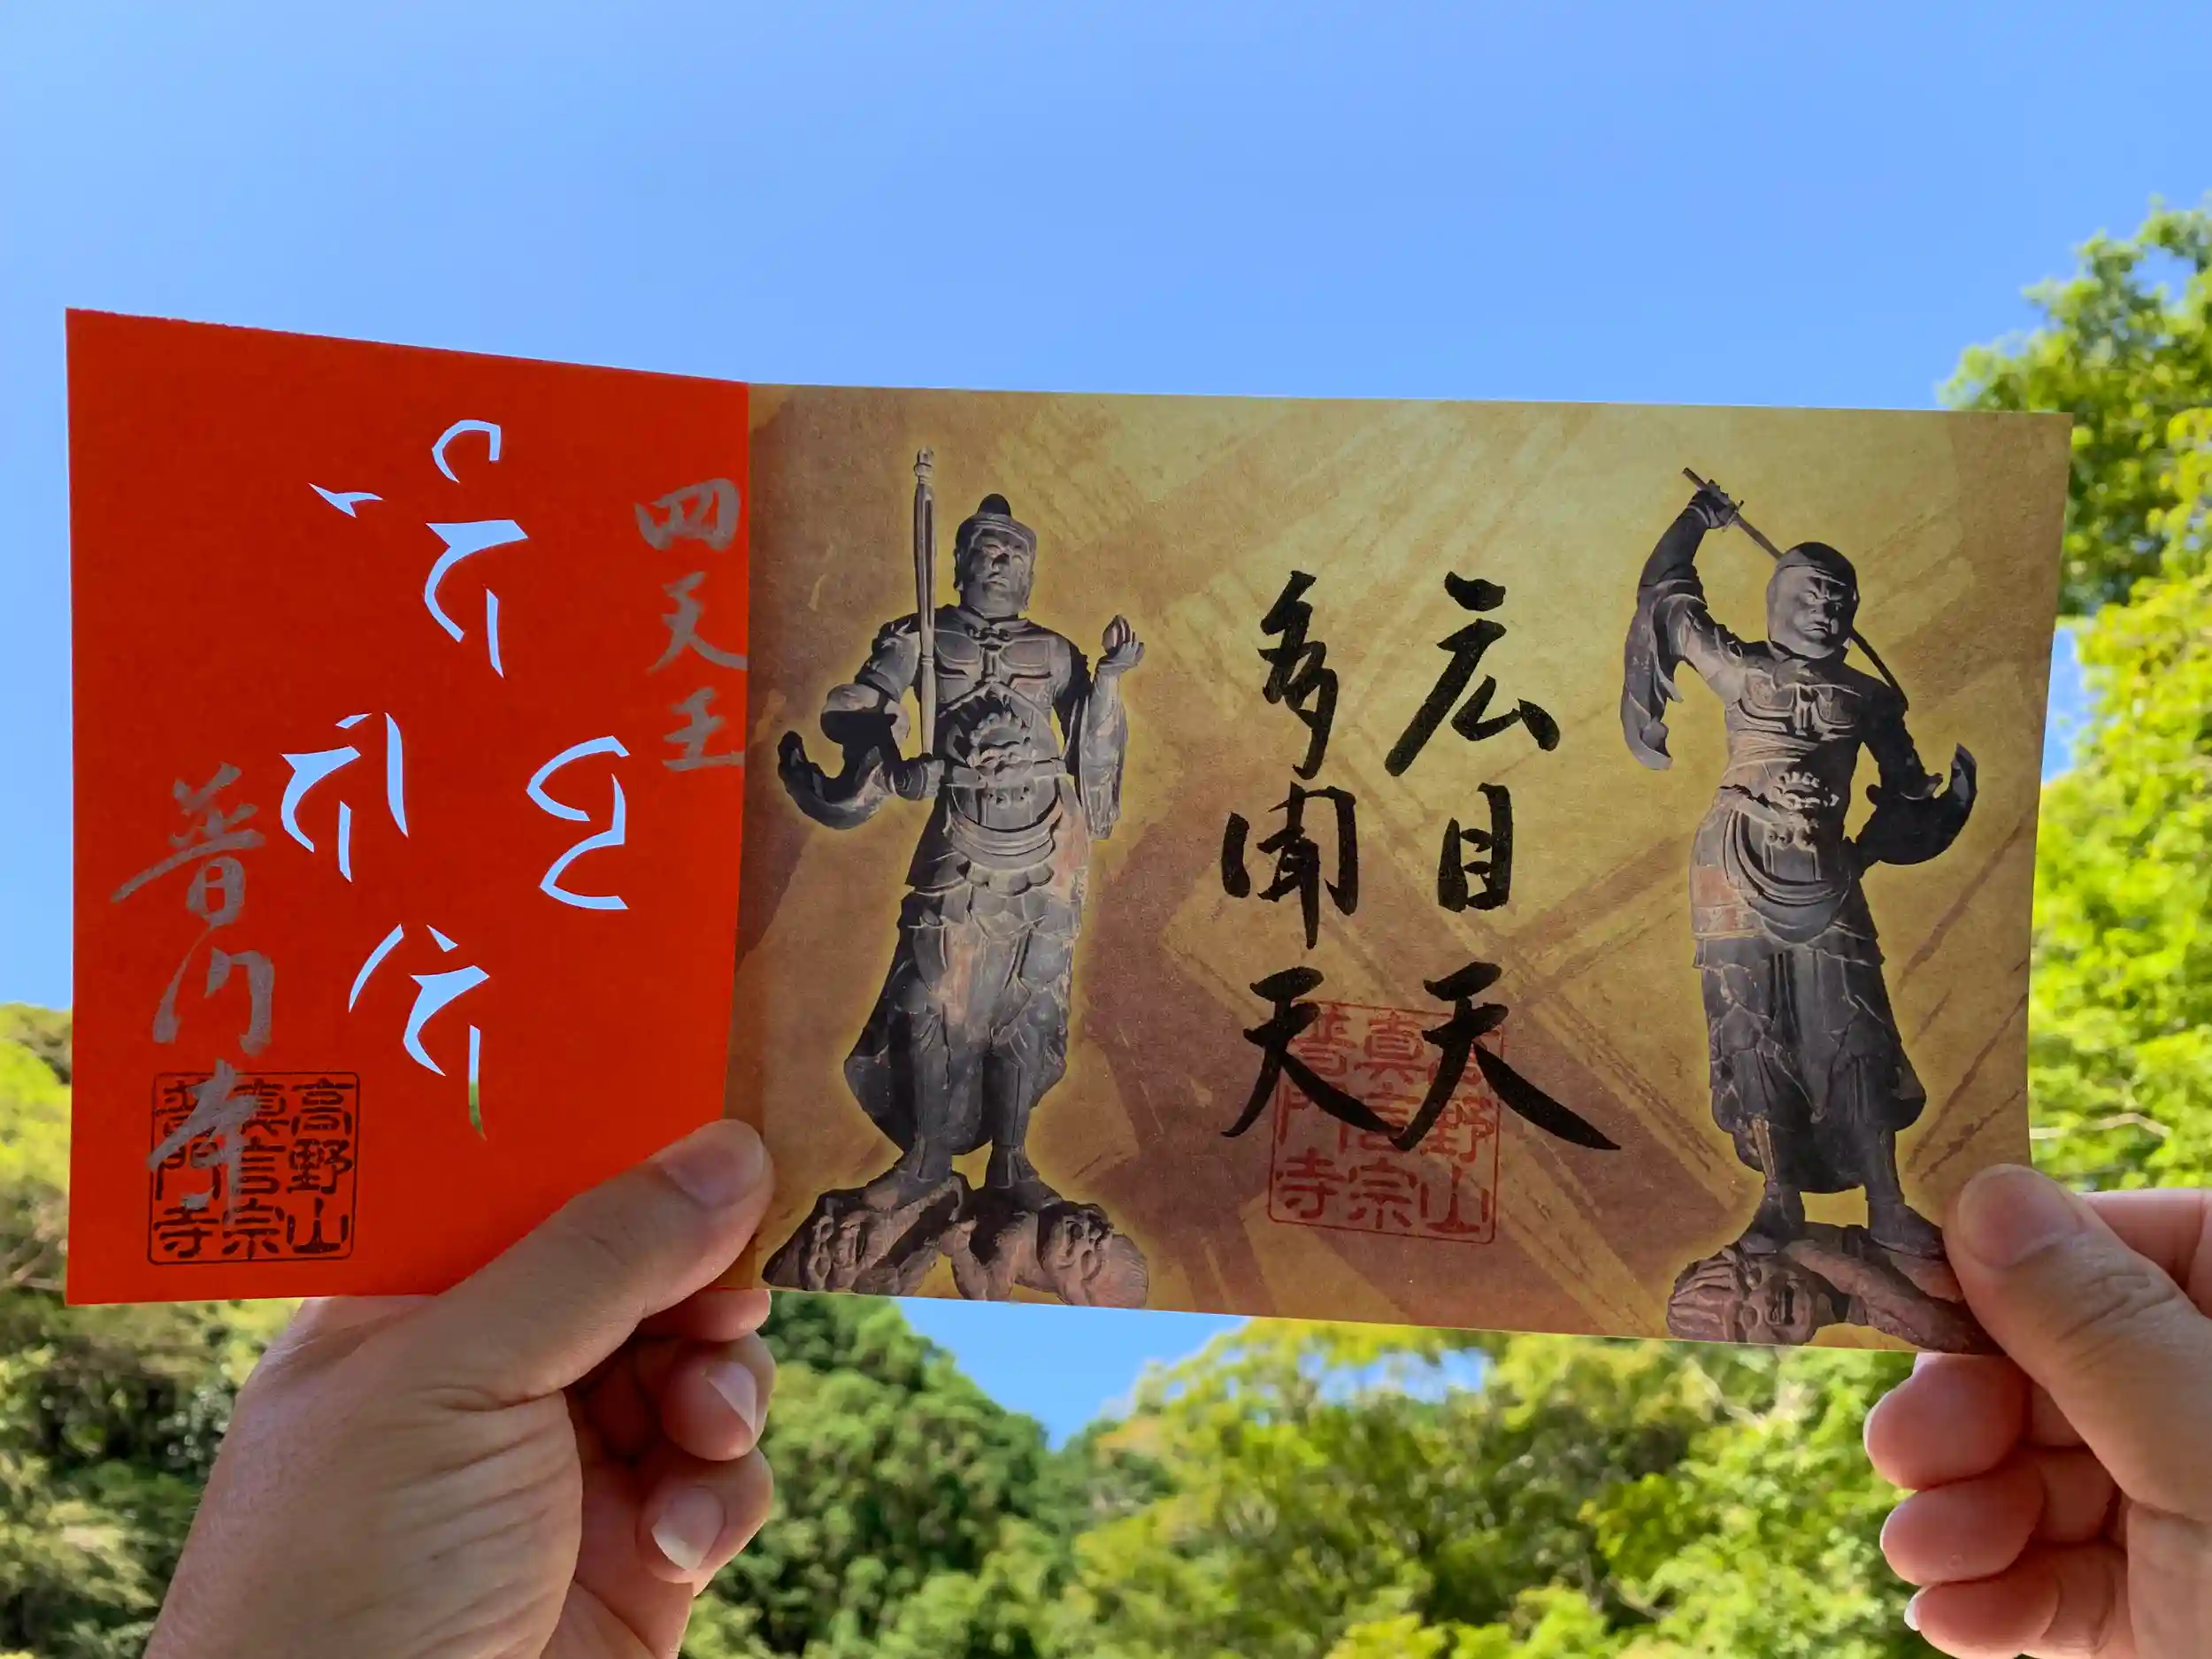 広目天
多聞天
高野山
真言宗
普門寺
四天王
普門寺
高野山
真言宗
普門寺